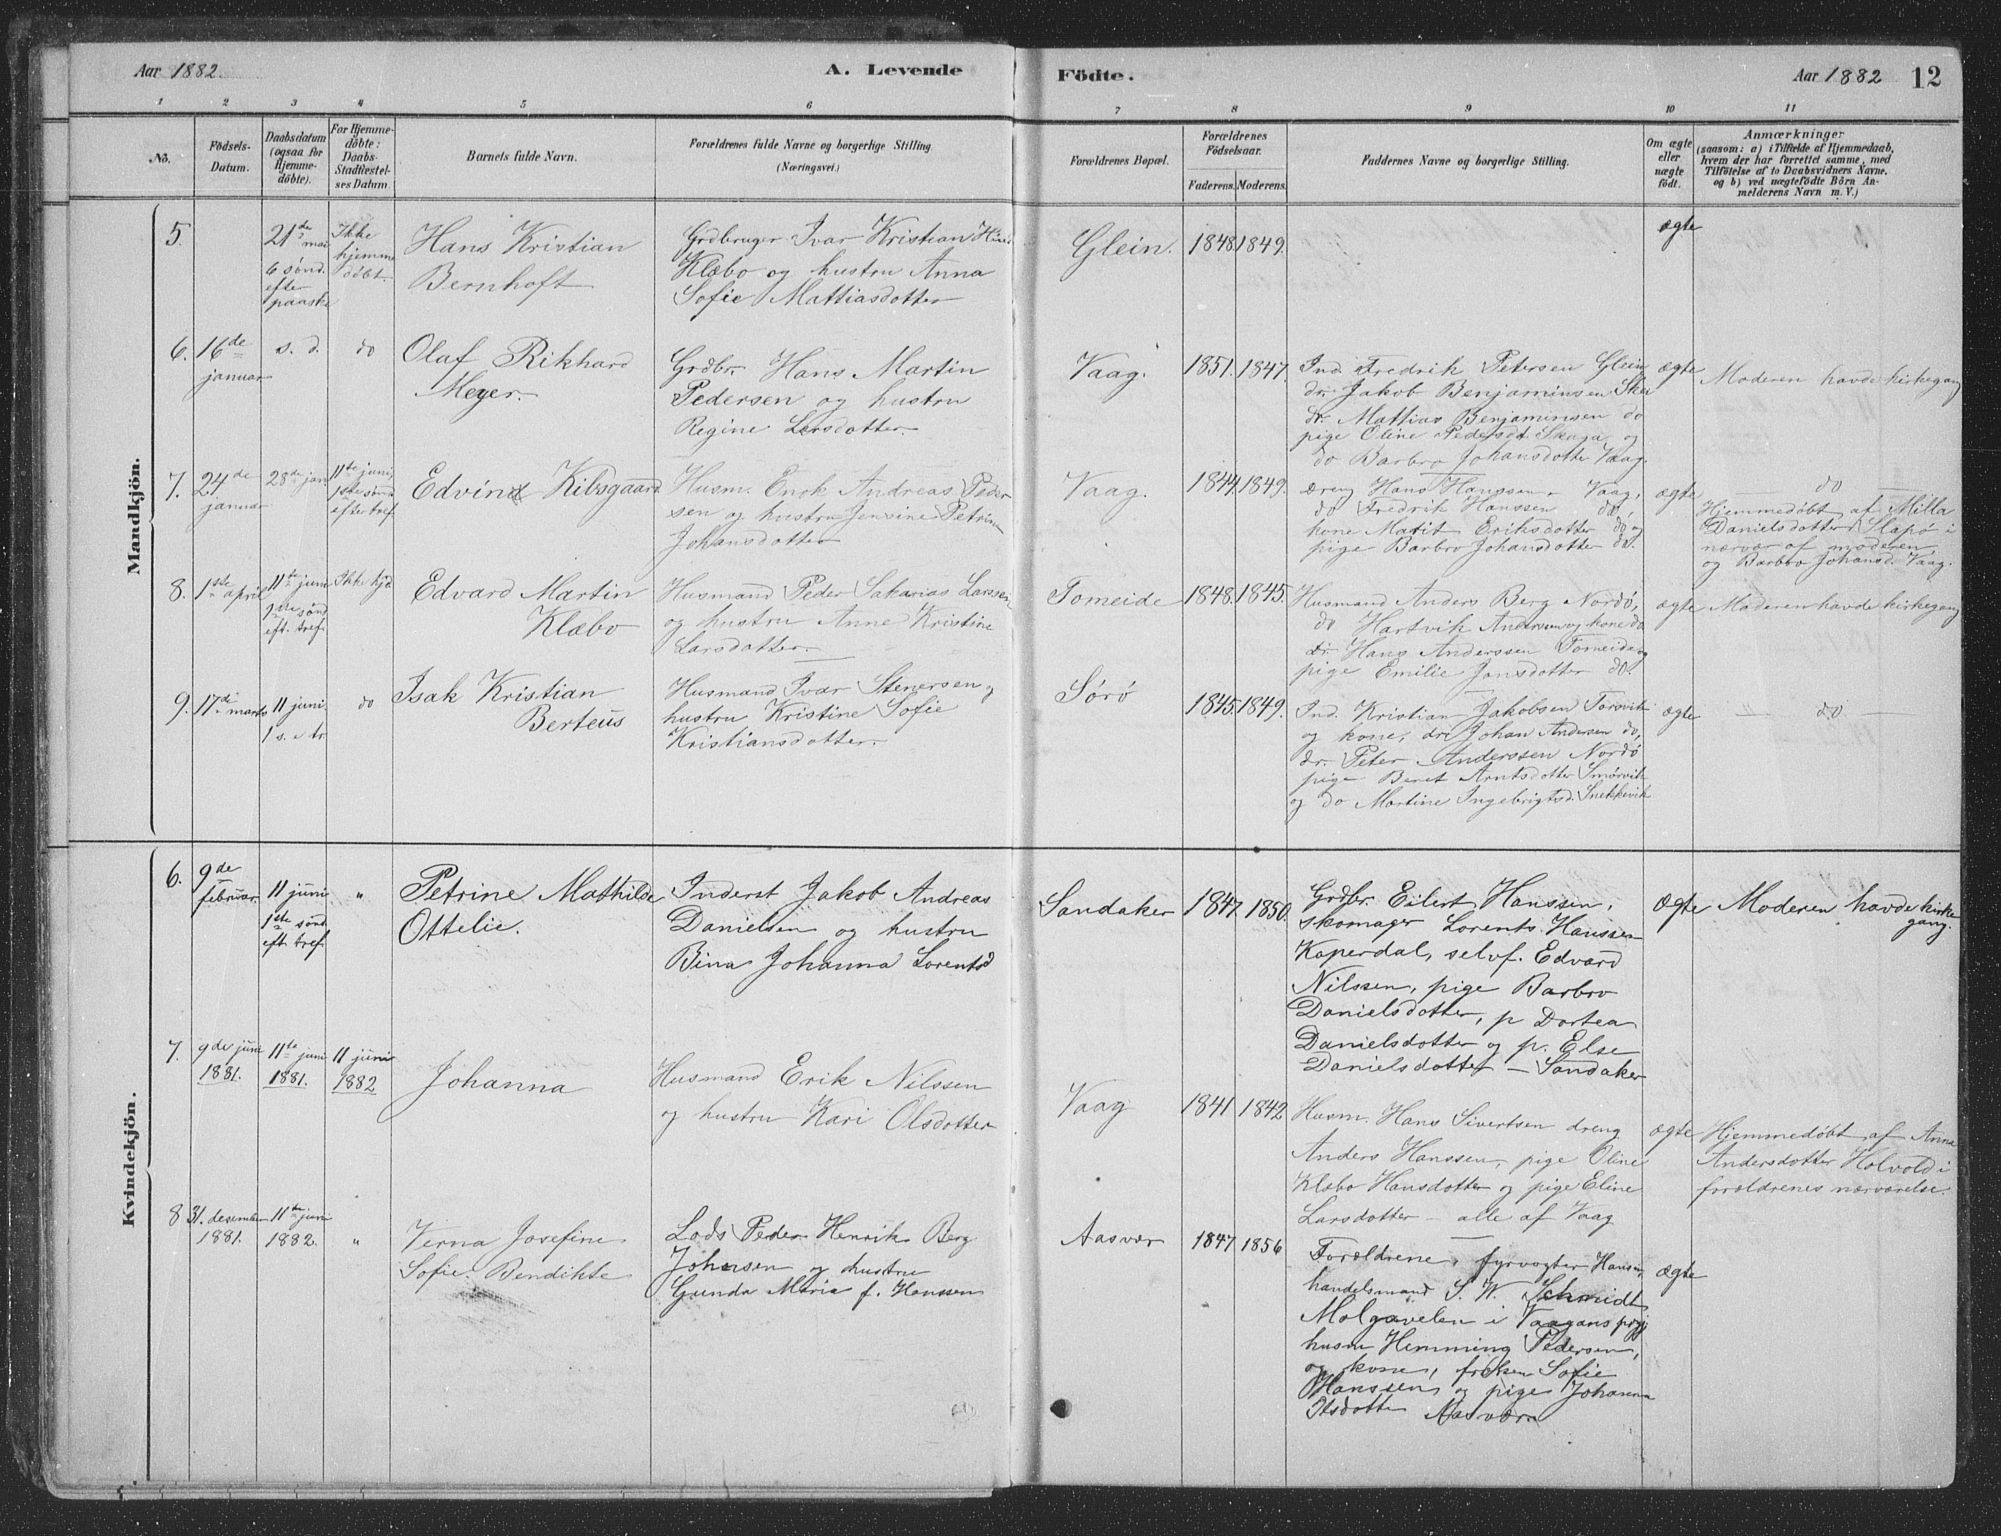 Aar 1882. A. Levende Födte. Aar 1882 12
1 2 3 4 5 6 7 8 9 10 11
No. Födsels-Datum. Daabsdatum (ogsaa for Hjemmedöbte). For Hjemmedöbte: Daabs-Stadfæstelses Datum. Barnets fulde Navn. Forældrenes fulde Navne og borgerlige Stilling. (Næringsvei.) Forældrenes Bopæl. Forældrenes Födselsaar. Faderens. Moderens. Faddernes Navne og borgerlige Stilling. Om ægte eller uægte födt. Anmærkninger (saasom: a) i Tilfælde af Hjemmedaab, hvem der har forrettet samme, med Tilföielse af to Daabsvidners Navne, og b) ved uægtefödte Börn Anmelderens Navn m. V.)
Mandkjön.
5.
21de mai
6 sønd.
efter
paaske
Ikke
hjemme
døbt.
Hans Kristian
Bernhoft
Grdbruger Ivar Kristian
Klæbo og hustru Anna
Sofie Mattiasdotter
Glein. 1848. 1849.
ægte
6. 16de
januar
s. d.
do
Olaf Rikhard
Meyer.
Grdbr. Hans Martin
Pedersen og hustru
Regine Larsdotter.
Vaag. 1851. 1847.
Ind. Fredrik Petersen Glein
dr. Jakob Benjaminsen Skei
dr. Mattias Benjaminsen do
pige Oline Pedersdt. Skaga, og
do Barbro Johansdotter Vaag.
ægte
Moderen havde kirkegang
7. 24de
januar
28de jan.
11te juni
1ste sønd
efter tref.
Edvin Kibsgaard
Husm. Enok Andreas Peder
sen og hustru Jensine Petrine
Johansdotter
Vaag. 1844. 1849.
dreng Hans Hanssen, Vaag,
do Fredrik Hanssen do,
kone Marit Eriksdotter do og
pige Barbro Johansdotter do.
ægte
— do —
Hjemmedøbt af Milla
Danielsdotter Slapø i
nærvær af moderen,
og Barbro Johansd. Vaag.
8. 1ste april
11te juni
sønd
eft. tref.
Ikke hjd
Edvard Martin
Klæbo
Husmand Peder Sakarias Larssen
og hustru Anne Kristine
Larsdotter.
Tomeide 1848. 1845.
Husmand Anders Berg Nordø,
do Hartvik Anderssen og kone do
dr. Hans Anderssen Tomeide og
pige Emilie Jonsdotter do.
ægte
Moderen havde kirkegang
9. 17de marts
11 juni
1 s. e tr.
do
Isak Kristian
Berteus
Husmand Ivar Stenersen og
hustru Kristine Sofie
Kristiansdotter.
Sørø 1845. 1849.
Ind. Kristian Jakobsen Torsvik
og kone, dr. Johan Andersen do,
dr. Peter Anderssen Nordø
pige Beret Arntsdotter Smørvik
og do Martine Ingebrigtsd. Snekkevik
ægte
— do —
Kvindekjön.
6. 9de
februar.
11 juni
1ste sønd
eft. tref.
"
Petrine Mathilde
Ottelie.
Inderst Jakob Andreas
Danielsen og hustru
Bina Johanna Lorentsd
Sandaker 1847. 1850.
Grdbr. Eilert Hanssen,
skomager Lorents Hanssen
Kaperdal, selvf. Edvard
Nilssen, pige Barbro
Danielsdotter, p Dortea
Danielsdotter og p. Else
Danielsdotter — Sandaker
ægte
Moderen havde kirke
gang.
7. 9de juni
1881.
11te juni
1881.
11 juni
1882
Johanna
Husmand Erik Nilssen
og hustru Kari Olsdotter
Vaag 1841 1842
Husm. Hans Sivertsen dreng
Anders Hanssen, pige Oline
Klæbo Hansdotter og pige Eline
Larsdotter — alle af Vaag
ægte
Hjemmedøbt af Anna
Andersdotter Holvold i
forældrenes nærværelse.
8 31. desember
1881.
11te juni
1882.
"
Verna Josefine
Sofie Bendikte
Lods Peder Henrik Berg
Johnsen og hustru
Gunda Maria f. Hanssen
Aasvær 1847 1856
Forældrene, fyrvogter Hansen,
handelsmand S. W. Schmidt
Molgavelen i Vaagans
Hemming Pedersen,
og kone, frøken Sofie
Hanssen og pige Johanna
Aasvær
ægte